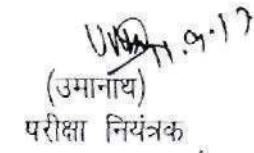 11.9.17
(उमानाथ)
परीक्षा नियंत्रक